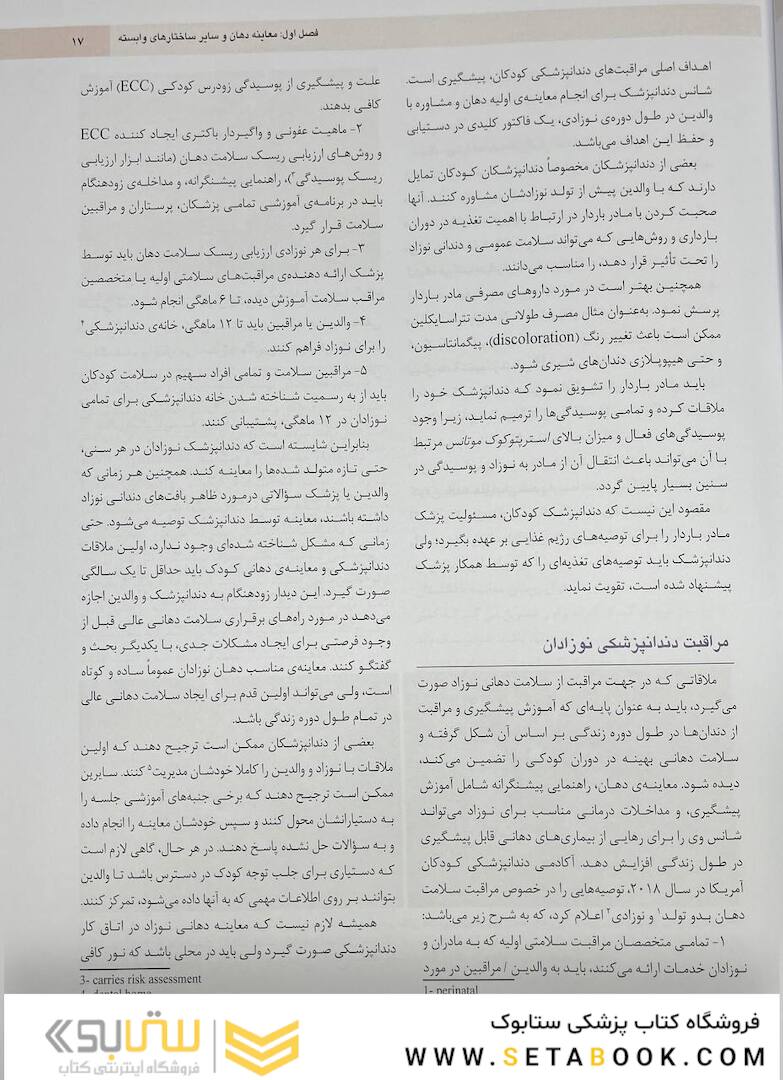 فصل اول: معاینه دهان و سایر ساختارهای وابسته ۱۷
اهداف اصلی مراقبت‌های دندانپزشکی کودکان، پیشگیری است.
شانس دندانپزشک برای انجام معاینه‌ی اولیه دهان و مشاوره با
والدین در طول دوره‌ی نوزادی، یک فاکتور کلیدی در دستیابی
و حفظ این اهداف می‌باشد.
بعضی از دندانپزشکان مخصوصاً دندانپزشکان کودکان تمایل
دارند که با والدین پیش از تولد نوزادشان مشاوره کنند. آنها
صحبت کردن با مادر باردار در ارتباط با اهمیت تغذیه در دوران
بارداری و روش‌هایی که می‌تواند سلامت عمومی و دندانی نوزاد
را تحت تأثیر قرار دهد، را مناسب می‌دانند.
همچنین بهتر است در مورد داروهای مصرفی مادر باردار
پرسش نمود. به‌عنوان مثال مصرف طولانی مدت تتراسایکلین
ممکن است باعث تغییر رنگ (discoloration)، پیگمانتاسیون،
و حتی هیپوپلازی دندان‌های شیری شود.
باید مادر باردار را تشویق نمود که دندانپزشک خود را
ملاقات کرده و تمامی پوسیدگی‌ها را ترمیم نماید، زیرا وجود
پوسیدگی‌های فعال و میزان بالای استرپتوکوک موتانس مرتبط
با آن می‌تواند باعث انتقال آن از مادر به نوزاد و پوسیدگی در
سنین بسیار پایین گردد.
مقصود این نیست که دندانپزشک کودکان، مسئولیت پزشک
مادر باردار را برای توصیه‌های رژیم غذایی بر عهده بگیرد؛ ولی
دندانپزشک باید توصیه‌های تغذیه‌ای را که توسط همکار پزشک
پیشنهاد شده است، تقویت نماید.
مراقبت دندانپزشکی نوزادان
ملاقاتی که در جهت مراقبت از سلامت دهانی نوزاد صورت
می‌گیرد، باید به عنوان پایه‌ای که آموزش پیشگیری و مراقبت
از دندان‌ها در طول دوره زندگی بر اساس آن شکل گرفته و
سلامت دهانی بهینه در دوران کودکی را تضمین می‌کند،
دیده شود. معاینه‌ی دهان، راهنمایی پیشنگرانه شامل آموزش
پیشگیری، و مداخلات درمانی مناسب برای نوزاد می‌تواند
شانس وی را برای رهایی از بیماری‌های دهانی قابل پیشگیری
در طول زندگی افزایش دهد. آکادمی دندانپزشکی کودکان
آمریکا در سال ۲۰۱۸، توصیه‌هایی را در خصوص مراقبت سلامت
دهان بدو تولد۱ و نوزادی۲ اعلام کرد، که به شرح زیر می‌باشد:
۱- تمامی متخصصان مراقبت سلامتی اولیه که به مادران و
نوزادان خدمات ارائه می‌کنند، باید به والدین / مراقبین در مورد
1- perinatal
علت و پیشگیری از پوسیدگی زودرس کودکی (ECC) آموزش
کافی بدهند.
۲- ماهیت عفونی و واگیردار باکتری ایجاد کننده ECC
و روش‌های ارزیابی ریسک سلامت دهان (مانند ابزار ارزیابی
ریسک پوسیدگی۳)، راهنمایی پیشنگرانه، و مداخله‌ی زودهنگام
باید در برنامه‌ی آموزشی تمامی پزشکان، پرستاران و مراقبین
سلامت قرار گیرد.
۳- برای هر نوزادی ارزیابی ریسک سلامت دهان باید توسط
پزشک ارائه دهنده‌ی مراقبت‌های سلامتی اولیه یا متخصصین
مراقب سلامت آموزش دیده، تا ۶ ماهگی انجام شود.
۴- والدین یا مراقبین باید تا ۱۲ ماهگی، خانه‌ی دندانپزشکی۴
را برای نوزاد فراهم کنند.
۵- مراقبین سلامت و تمامی افراد سهیم در سلامت کودکان
باید از به رسمیت شناخته شدن خانه دندانپزشکی برای تمامی
نوزادان در ۱۲ ماهگی، پشتیبانی کنند.
بنابراین شایسته است که دندانپزشک نوزادان در هر سنی،
حتی تازه متولد شده‌ها را معاینه کند. همچنین هر زمانی که
والدین یا پزشک سؤالاتی درمورد ظاهر بافت‌های دندانی نوزاد
داشته باشند، معاینه توسط دندانپزشک توصیه می‌شود. حتی
زمانی که مشکل شناخته شده‌ای وجود ندارد، اولین ملاقات
دندانپزشکی و معاینه‌ی دهانی کودک باید حداقل تا یک سالگی
صورت گیرد. این دیدار زودهنگام به دندانپزشک و والدین اجازه
می‌دهد در مورد راه‌های برقراری سلامت دهانی عالی قبل از
وجود فرصتی برای ایجاد مشکلات جدی، با یکدیگر بحث و
گفتگو کنند. معاینه‌ی مناسب دهان نوزادان عموماً ساده و کوتاه
است، ولی می‌تواند اولین قدم برای ایجاد سلامت دهانی عالی
در تمام طول دوره زندگی باشد.
بعضی از دندانپزشکان ممکن است ترجیح دهند که اولین
ملاقات با نوزاد و والدین را کاملا خودشان مدیریت۵ کنند. سایرین
ممکن است ترجیح دهند که برخی جنبه‌های آموزشی جلسه را
به دستیارانشان محول کنند و سپس خودشان معاینه را انجام داده
و به سؤالات حل نشده پاسخ دهند. در هر حال، گاهی لازم است
که دستیاری برای جلب توجه کودک در دسترس باشد تا والدین
بتوانند بر روی اطلاعات مهمی که به آنها داده می‌شود، تمرکز کنند.
همیشه لازم نیست که معاینه دهانی نوزاد در اتاق کار
دندانپزشکی صورت گیرد ولی باید در محلی باشد که نور کافی
3- carries risk assessment
4- dental home
فروشگاه کتاب پزشکی ستابوک
WWW.SETABOOK.COM
ستابوک
فروشگاه اینترنتی کتاب